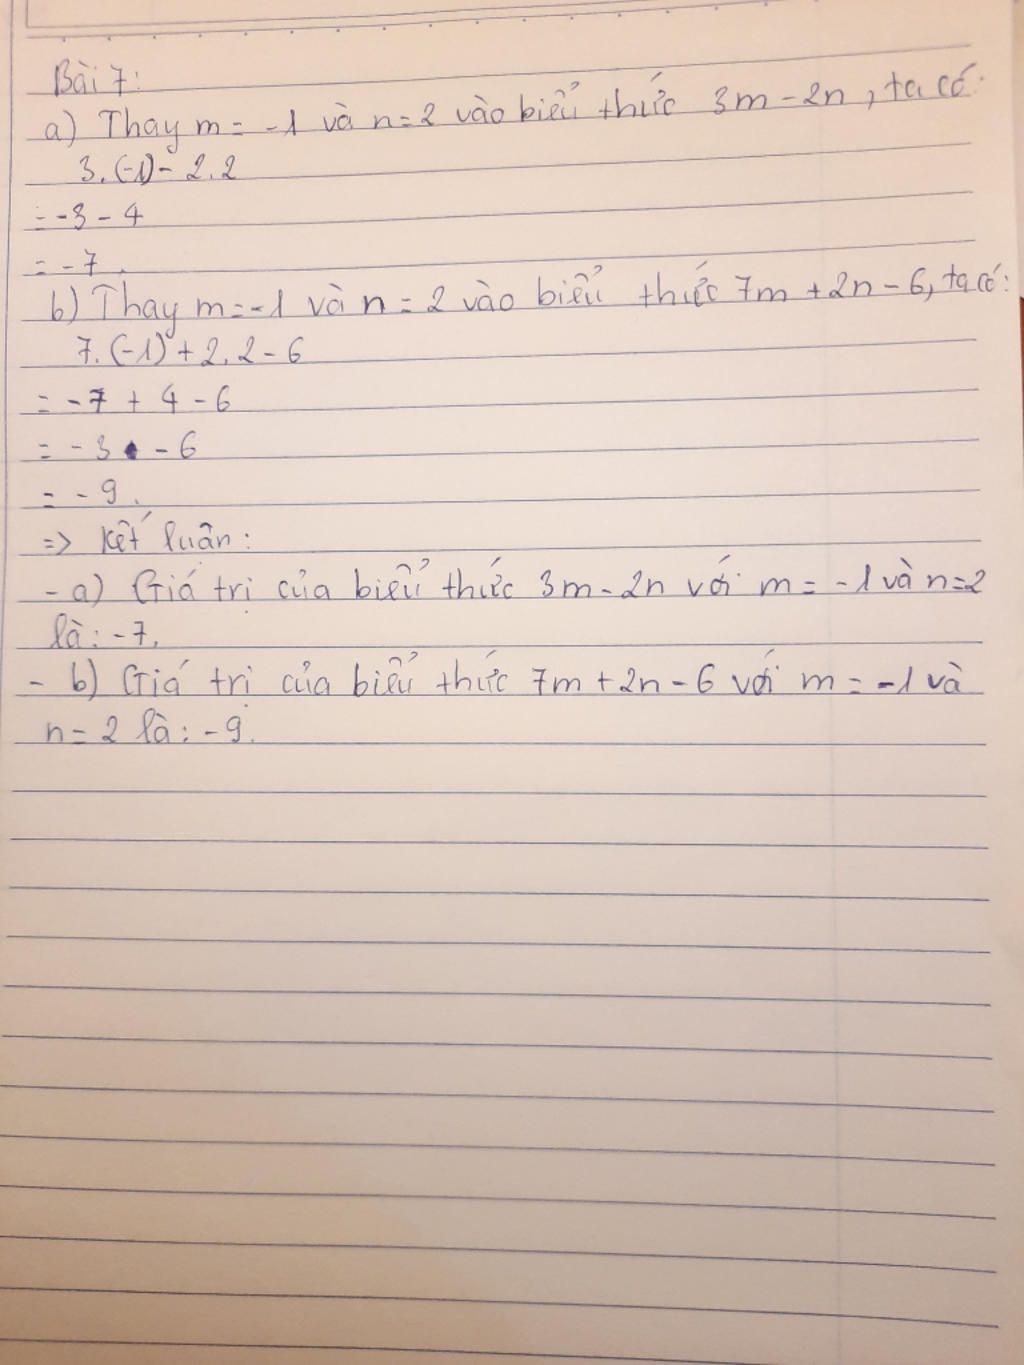 Bài 7:
a) Thay m = -1 và n = 2 vào biểu thức 3m - 2n, ta có:
3.(-1) - 2.2
= -3 - 4
= -7.
b) Thay m = -1 và n = 2 vào biểu thức 7m + 2n - 6, ta có:
7.(-1) + 2.2 - 6
= -7 + 4 - 6
= -3 - 6
= -9.
=> Kết luận:
- a) Giá trị của biểu thức 3m - 2n với m = -1 và n = 2
là: -7.
- b) Giá trị của biểu thức 7m + 2n - 6 với m = -1 và
n = 2 là: -9.